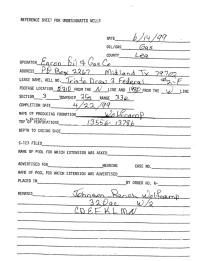 REFERENCE SHEET FOR UNDESIGNATED WELLS
DATE 6/14/99
OIL/GAS Gas
COUNTY Lea
OPERATOR Enron Oil & Gas Co
ADDRESS PO Box 2267 Midland Tx 79702
LEASE NAME, WELL NO. Triste Draw 3 Federal
FOOTAGE LOCATION FROM THE N LINE AND FROM THE W LINE
SECTION 3 TOWNSHIP RANGE 33E
COMPLETION DATE 4/22/99
NAME OF PRODUCING FORMATION Wolfcamp
TOP OF PERFORATIONS 13556-13786
DEPTH TO CASING SHOE
C-123 FILED
NAME OF POOL FOR WHICH EXTENSION WAS ASKED
ADVERTISED FOR HEARING CASE NO.
NAME OF POOL FOR WHICH EXTENSION WAS ADVERTISED
PLACED IN BY ORDER NO. R-
REMARKS Johnson Ranch Wolfcamp
W/2
CDEFKLMN